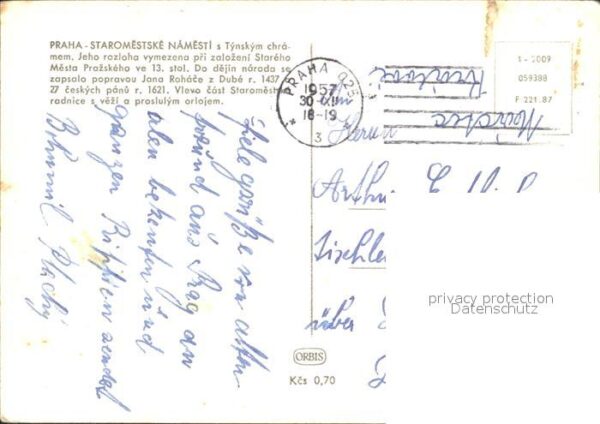 PRAHA - STAROMĚSTSKÉ NÁMĚSTÍ s Týnským chrá-
mem. Jeho rozloha vymezena při založení Starého
Města Pražského ve 13. stol. Do dějin národa se
zapsalo popravou Jana Roháče z Dubé r. 1437
27 českých pánů r. 1621. Vlevo část Staroměst
radnice s věží a proslulým orlojem.
PRAHA 025
1957
30-XII
18-19
3
1 - 2009
059388
F 221.87
Viele grüße von alten
freund aus Prag an
alen bekenten und
ganzen
Bohumil Plachý
Herrn
Arthu
Tischle
über
privacy protection
Datenschutz
ORBIS
Kčs 0,70